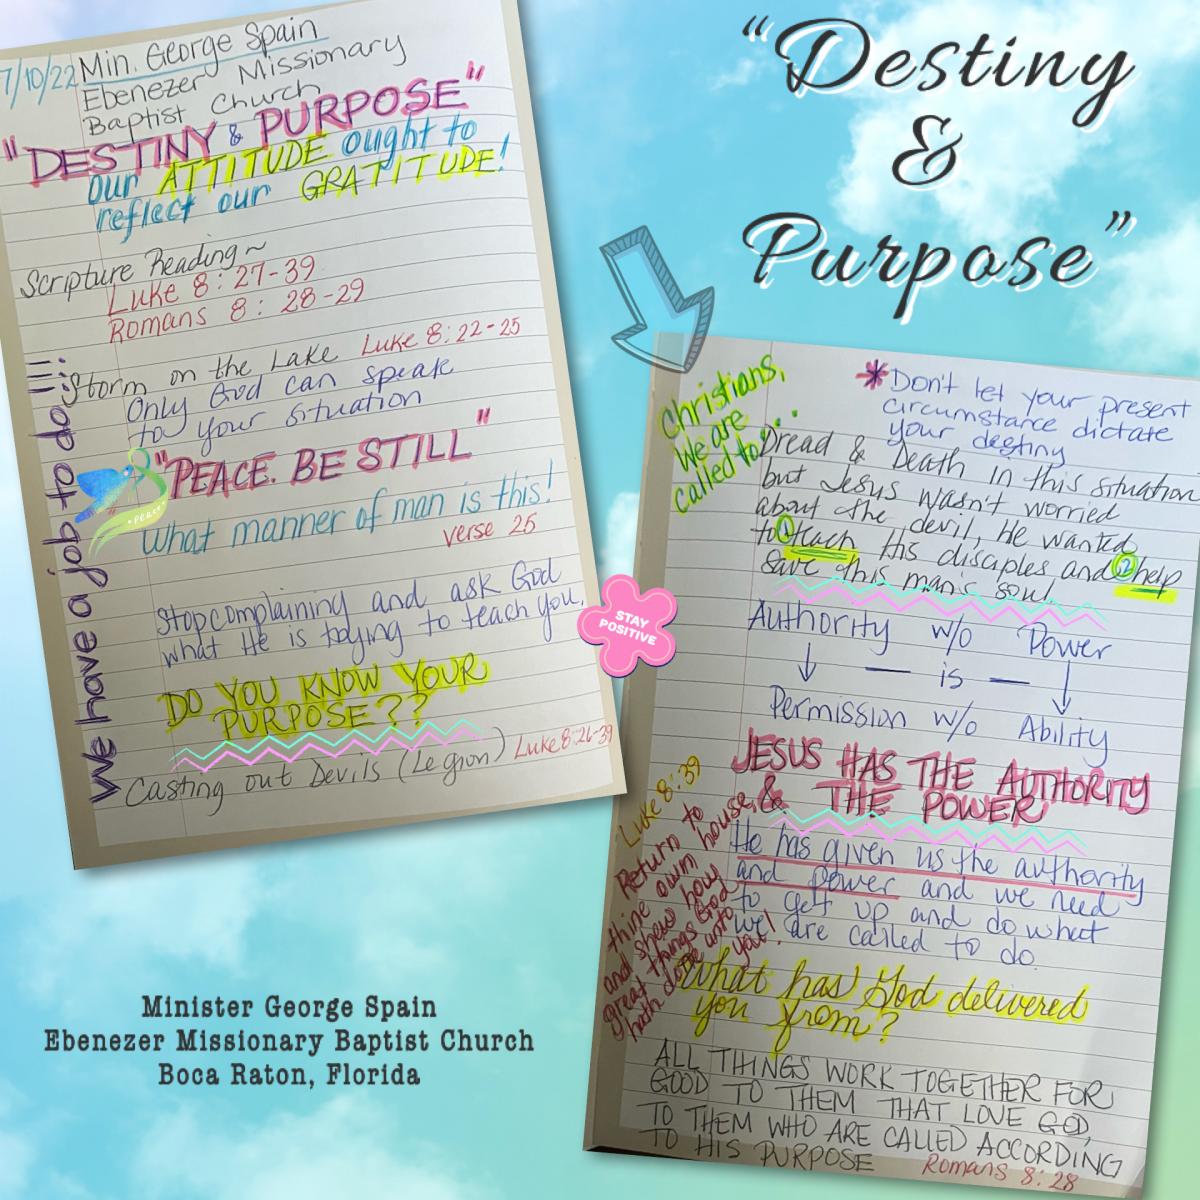 "Destiny
&
Purpose"
7/10/22 Min. George Spain
Ebenezer Missionary
Baptist Church
"DESTINY & PURPOSE"
our ATTITUDE ought to
reflect our GRATITUDE!
Scripture Reading~
Luke 8:27-39
Romans 8:28-29
Storm on the Lake Luke 8:22-25
Only God can speak
to your situation
"PEACE. BE STILL"
•PEACE•
What manner of man is this!
verse 25
Stop complaining and ask God
what He is trying to teach you.
DO YOU KNOW YOUR
PURPOSE??
Casting out Devils (Legion) Luke 8:26-39
We have a job to do!!!
STAY
POSITIVE
Christians,
We are
called to...
*Don't let your present
circumstance dictate
your destiny
Dread & Death in this situation
but Jesus wasn't worried
about the devil, He wanted
to ① teach His disciples and ② help
save this man's soul
Authority w/o Power
↓ — is — ↓
Permission w/o Ability
JESUS HAS THE AUTHORITY
& THE POWER
He has given us the authority
and power and we need
to get up and do what
we are called to do.
Luke 8:39
Return to
thine own house,
and shew how
great things God
hath done unto
you!
What has God delivered
you from?
ALL THINGS WORK TOGETHER FOR
GOOD TO THEM THAT LOVE GOD,
TO THEM WHO ARE CALLED ACCORDING
TO HIS PURPOSE Romans 8:28
Minister George Spain
Ebenezer Missionary Baptist Church
Boca Raton, Florida